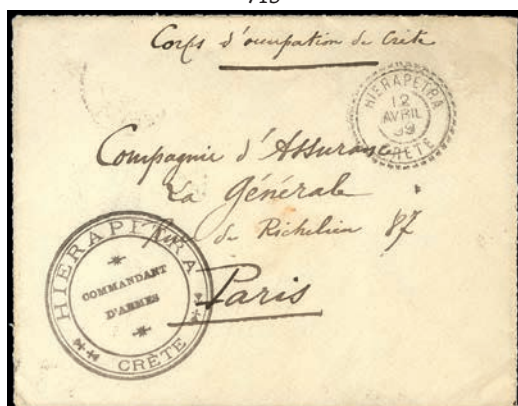 713
Corps d'occupation de Crète
HIERAPETRA
12
AVRIL
99
CRETE
Compagnie d'Assurance
La Générale
Rue de Richelieu 87
Paris
HIERAPETRA
COMMANDANT
D'ARMES
CRÈTE